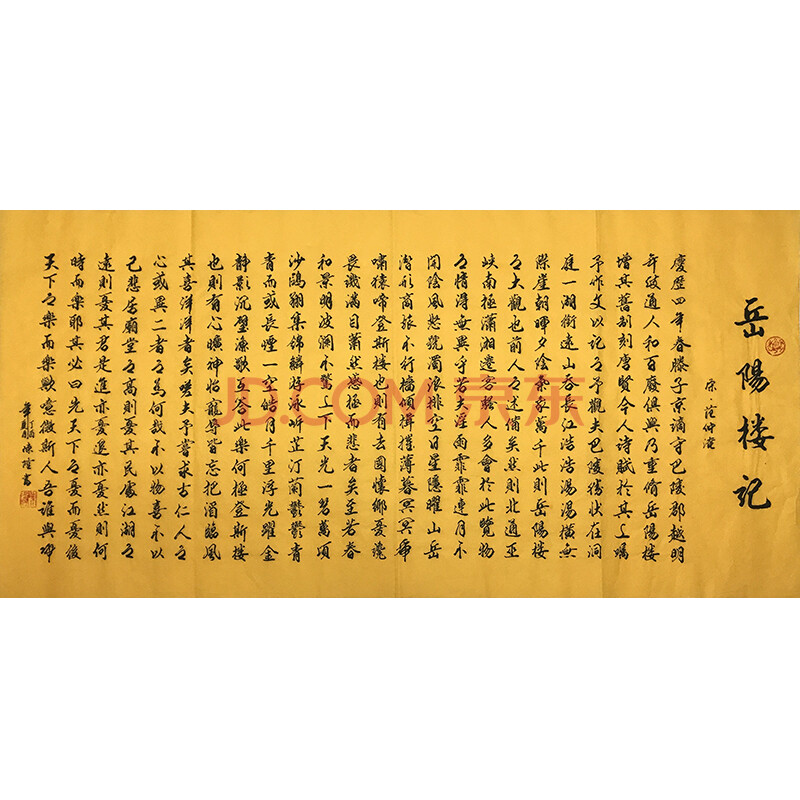 岳陽楼记
宋·范仲淹
慶歷四年春滕子京謫守巴陵郡越明
年政通人和百廢俱興乃重脩岳陽楼
增其舊制刻唐賢今人诗賦於其上嘱
予作文以记之予觀夫巴陵勝状在洞
庭一湖銜遠山吞長江浩浩湯湯橫無
際崖朝暉夕陰氣象萬千此則岳陽楼
之大觀也前人之述備矣然則北通巫
峡南極瀟湘遷客騷人多會於此覽物
之情得無異乎若夫淫雨霏霏連月不
開陰風怒號濁浪排空日星隱曜山岳
潛形商旅不行檣傾楫摧薄暮冥冥虎
嘯猿啼登斯楼也則有去國懷鄉憂讒
畏譏滿目蕭然感極而悲者矣至若春
和景明波瀾不驚上下天光一碧萬頃
沙鷗翔集錦鱗游泳岸芷汀蘭鬱鬱青
青而或長煙一空皓月千里浮光躍金
静影沉璧漁歌互答此樂何極登斯楼
也則有心曠神怡寵辱皆忘把酒臨風
其喜洋洋者矣嗟夫予嘗求古仁人之
心或異二者之為何哉不以物喜不以
己悲居廟堂之高則憂其民處江湖之
遠則憂其君是進亦憂退亦憂然則何
時而樂耶其必曰先天下之憂而憂後
天下之樂而樂歟噫微斯人吾誰與歸
JD.COM 京东